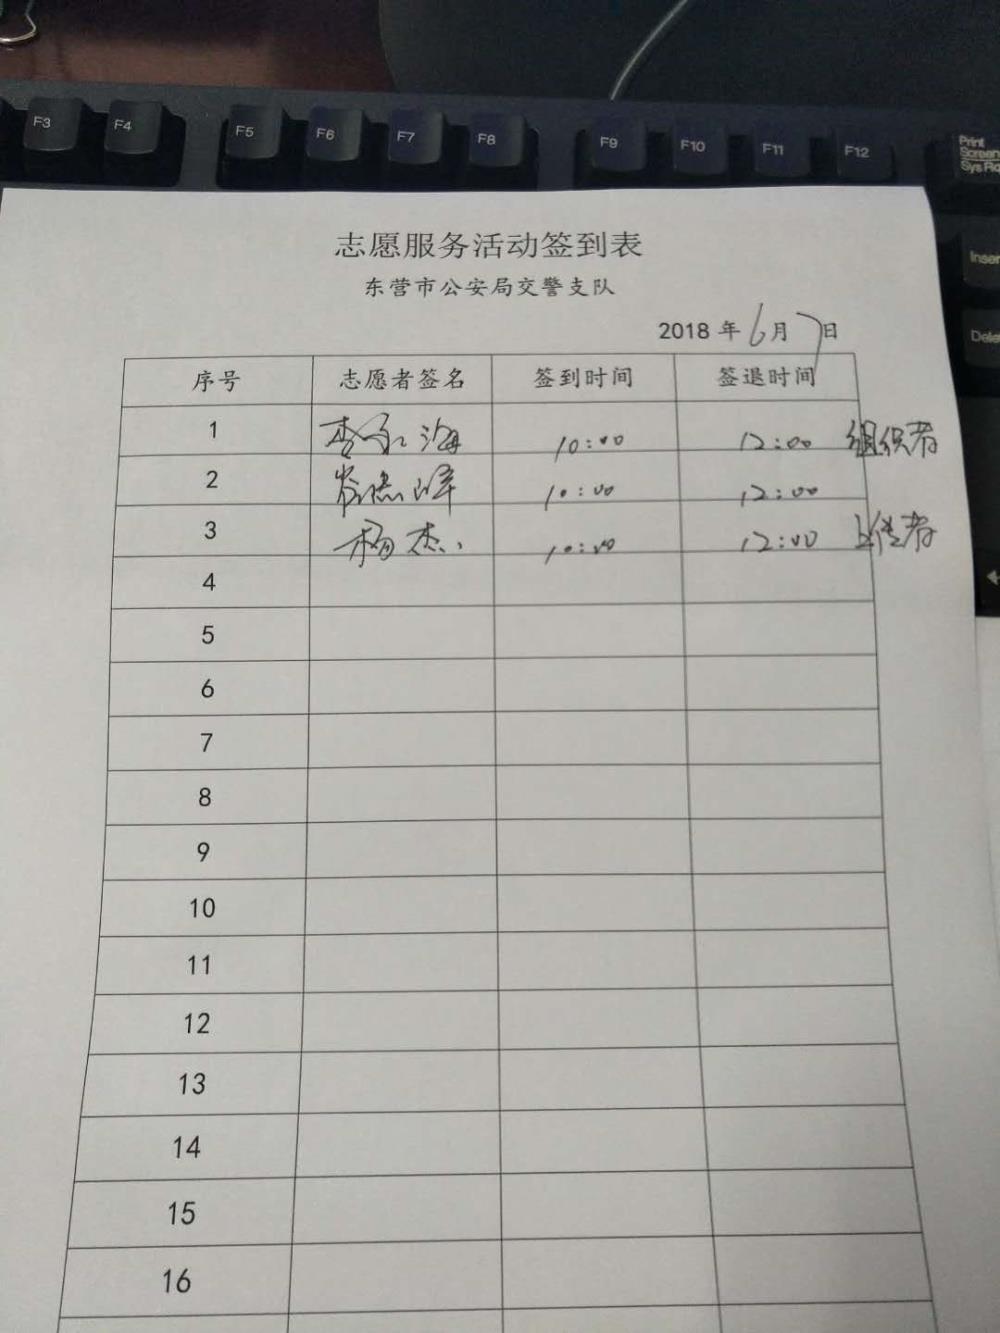 F3 F4 F5 F6 F7 F8 F9 F10 F11 F12
Print
Screen
志愿服务活动签到表
东营市公安局交警支队
2018 年 6 月 7 日
序号 志愿者签名 签到时间 签退时间
1 10:00 12:00 组织者
2 10:00 12:00
3 杨杰 10:00 12:00 上传者
4
5
6
7
8
9
10
11
12
13
14
15
16